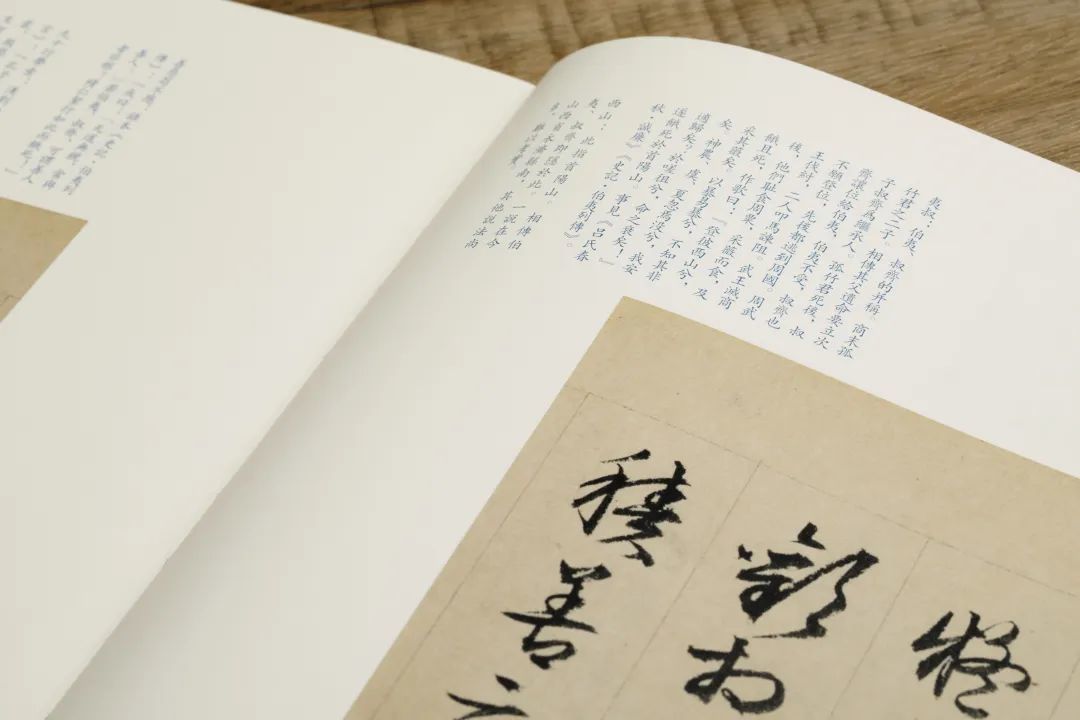 夷叔：伯夷、叔齊的并稱。商末孤
竹君之二子。相傳其父遺命要立次
子叔齊爲繼承人。孤竹君死後，叔
齊讓位給伯夷，伯夷不受，叔齊也
不願登位，先後都逃到周國。周武
王伐紂，二人叩馬諫阻。武王滅商
後，他們耻食周粟，采薇而食，
餓且死，作歌曰：「登彼西山兮，
采其薇矣。以暴易暴兮，不知其非
矣。神農、虞、夏忽焉没兮，我安
適歸矣？於嗟徂兮，命之衰矣！」
遂餓死於首陽山。事見《吕氏春
秋·誠廉》《史記·伯夷列傳》。
西山：此指首陽山。相傳伯
夷、叔齊即隱於此。一説在今
山西省永濟縣南，其他説法尚
多，難以考實。
將
歡相
積善云